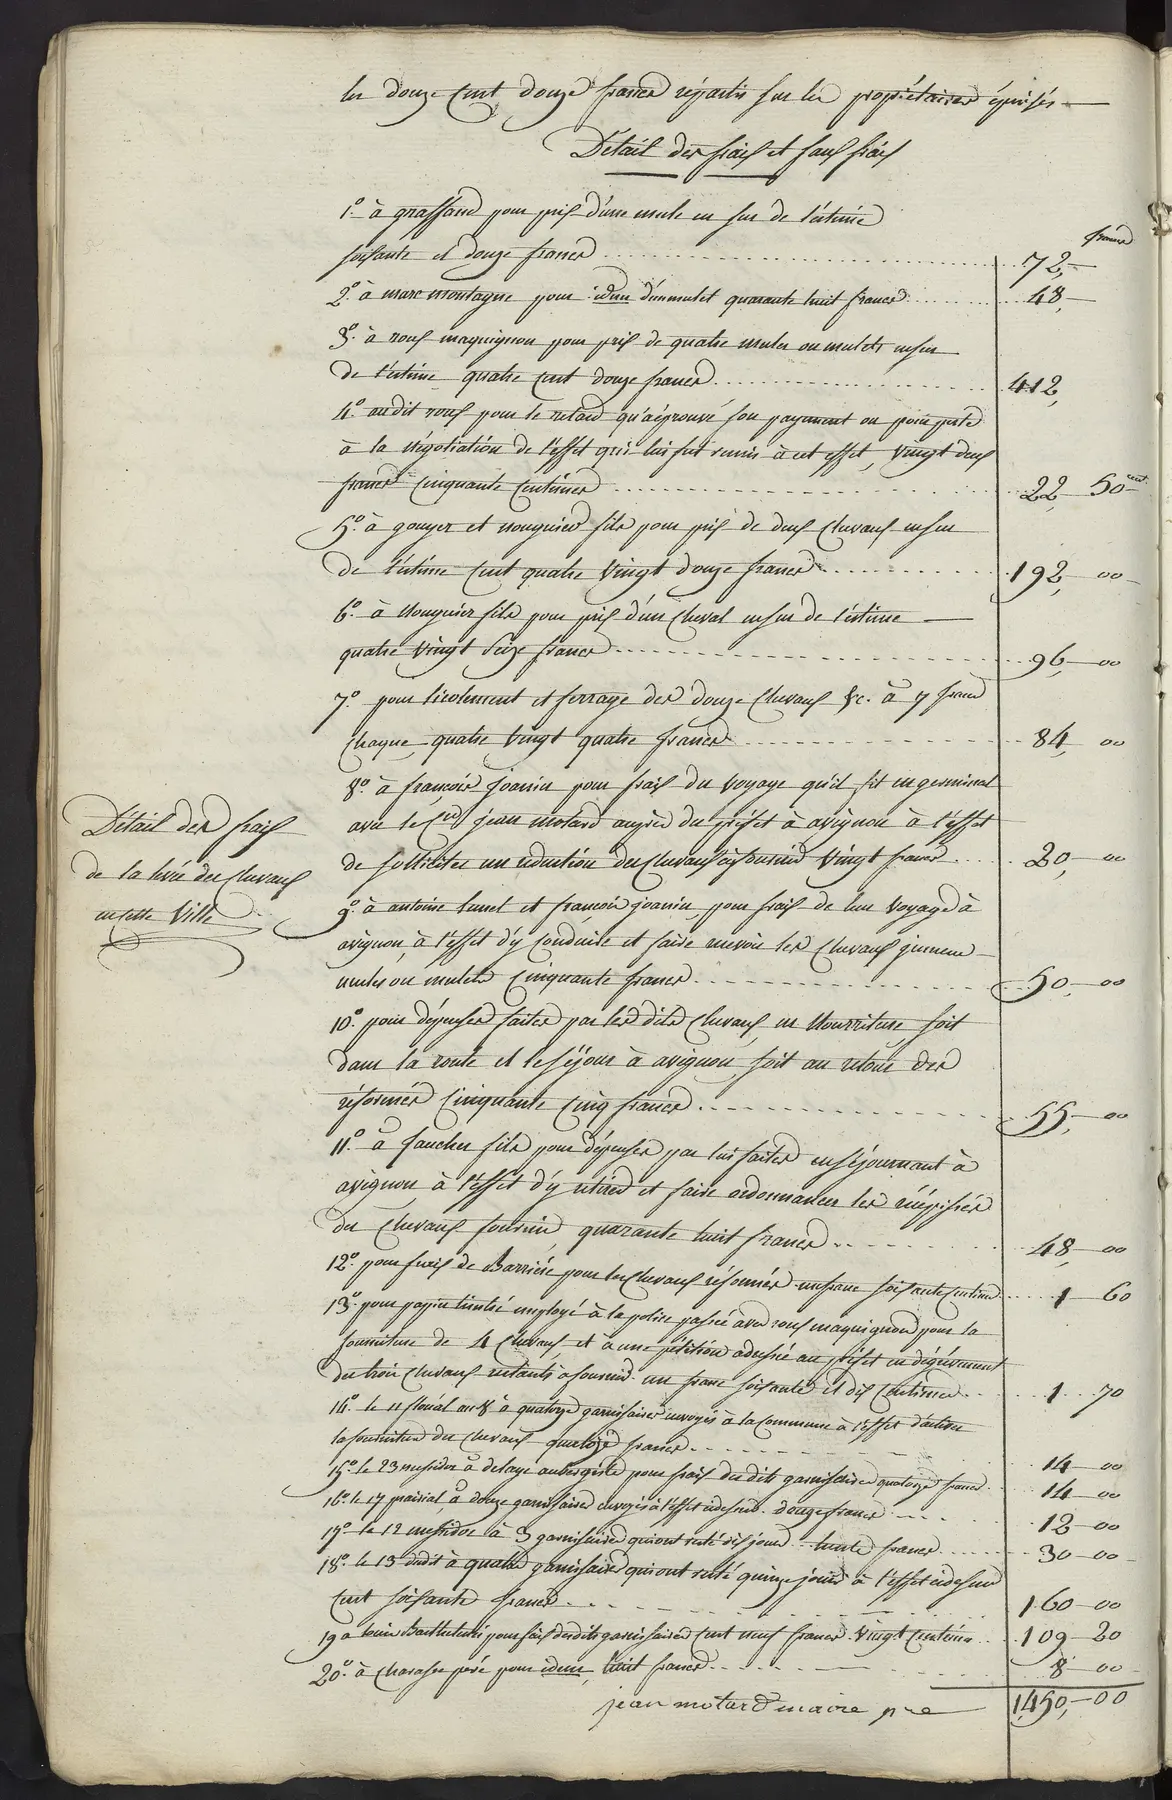 les douze cent douze francs répartis sur les propriétaires épuisés
Détail des frais et faux frais
1.° à graffand pour prix d'une mule en sus de l'estime
francs
soixante et douze francs 72,
2.° à marc montagne pour idem d'un mulet quarante huit francs 48,
3.° à roux maquignon pour prix de quatre mules ou mulets ensus
de l'estime quatre cent douze francs 412,
4.° audit roux pour le retard qu'a éprouvé son payement ou pour perte
à la négotiation de l'effet qui lui fut remis à cet effet, vingt deux
francs cinquante centimes 22, 50
5.° à gouyer et nouguier fils pour prix de deux chevaux ensus
de l'estime cent quatre vingt douze francs 192, 00
6.° à Nouguier fils pour prix d'un cheval ensus de l'estime
quatre vingt seize francs 96, 00
7.° pour licolement et ferrage des douze chevaux &c. à 7 francs
chaque, quatre vingt quatre francs 84, 00
8.° à françois joannin pour frais du voyage qu'il fit en germinal
avec le Cit jean motard auprès du préfet à avignon à l'effet
de solliciter un réduction des chevaux à fournir vingt francs 20, 00
9.° à antoine tunel et françois joannin, pour frais de leur voyage à
avignon, à l'effet d'y conduire et faire recevoir les chevaux jumens
mules ou mulets cinquante francs 50, 00
10.° pour dépenses faites par les dits chevaux, en nourriture, soit
dans la route et le séjour à avignon, soit au retour des
réformés cinquante cinq francs 55, 00
11.° à faucher fils pour dépenses par lui faites en séjournant à
avignon, à l'effet d'y retirer et faire ordonnancer les récépissés
des chevaux fournis quarante huit francs 48, 00
12.° pour frais de Barrière pour les chevaux réformés un franc soixante centimes 1 60
13.° pour papier timbré employé à la police passée avec roux maquignon pour la
fourniture de 4 chevaux, et à une pétition adressée au préfet en dégrèvement
des trois chevaux restants à fournir un franc soixante et dix centimes 1 70
14.° le 11 floréal an 8 à quatorze garnisaires envoyés à la Commune à l'effet d'activer
la fourniture des chevaux quatorze francs 14 00
15.° le 23 messidor à delaye aubergiste pour frais des dits garnisaires quatorze francs 14 00
16.° le 17 prairial à douze garnisaires envoyés à l'effet cidessus douze francs 12 00
17.° le 12 messidor à 3 garnisaires qui ont resté dix jours trente francs 30 00
18.° le 13 dudit à quatre garnisaires qui ont resté quinze jours à l'effet cidessus
cent soixante francs 160 00
19 à louis Barthelemi pour frais desdits garnisaires cent neuf francs vingt centimes 109 20
20.° à charasse père pour idem, huit francs 8 00
jean motard maire 1,450, 00
Détail des frais
de la levée des chevaux
en cette Ville